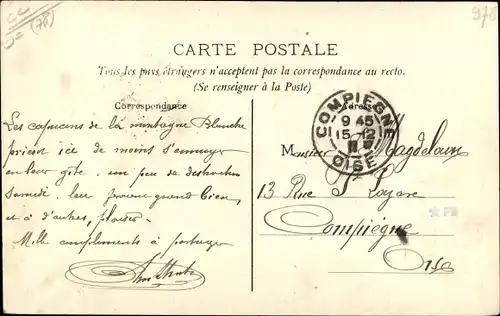 976
(78)
CARTE POSTALE
Tous les pays étrangers n'acceptent pas la correspondance au recto.
(Se renseigner à la Poste)
Correspondance
Adresse
COMPIEGNE
9 45
15 12
OISE
Les capucins de la montagne Blanche
prient ice de moins s'ennuyer
en leur gite. un peu se
samedi. leur grand bien
et à d'autres, plaisir.
Mille compliments à partager
Monsieur Magdelaine
13 Rue St Lazare
Compiègne
Oise